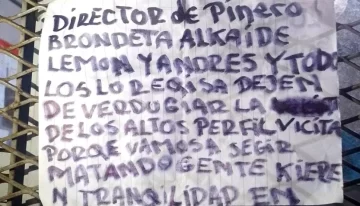 DIRECTOR de Piñero
BRONDETA ALKAIDE
LEMON Y ANDRES Y TODO
LOS LO REQISA DEJEN
DE VERDUGIAR LA
DE LOS ALTOS PERFIL VICITA
PORQE VAMOS A SEGIR
MATANDO GENTE KIEREN
N TRANQILIDAD EM